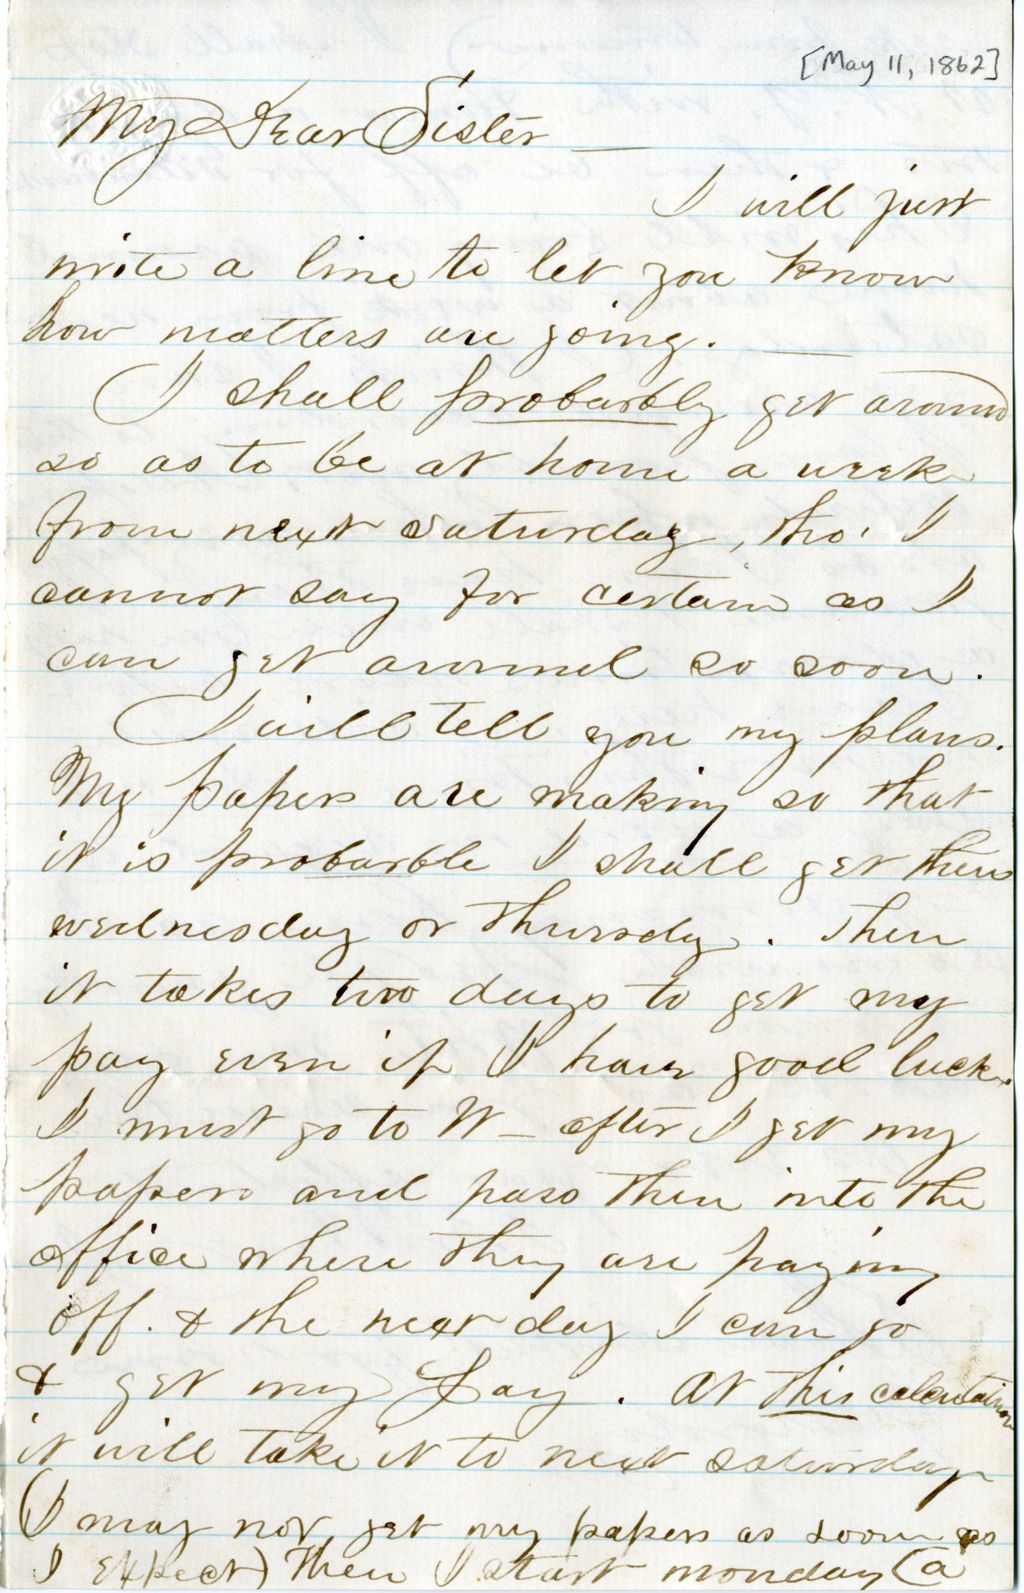 [May 11, 1862]
My Dear Sister —
I will just
write a line to let you know
how matters are going. —
I shall probarbly get around
so as to be at home a week
from next Saturday, tho' I
cannot say for certain as I
can get around so soon.
I will tell you my plans.
My papers are making so that
it is probarble I shall get them
Wednesday or Thursday. Then
it takes two days to get my
pay even if I have good luck.
I must go to W— after I get my
papers and pass them into the
office where they are paying
off. & the next day I can go
& get my Pay. At this calculation
it will take it to next Saturday
(I may not get my papers as soon as
I expect) Then I start monday (a